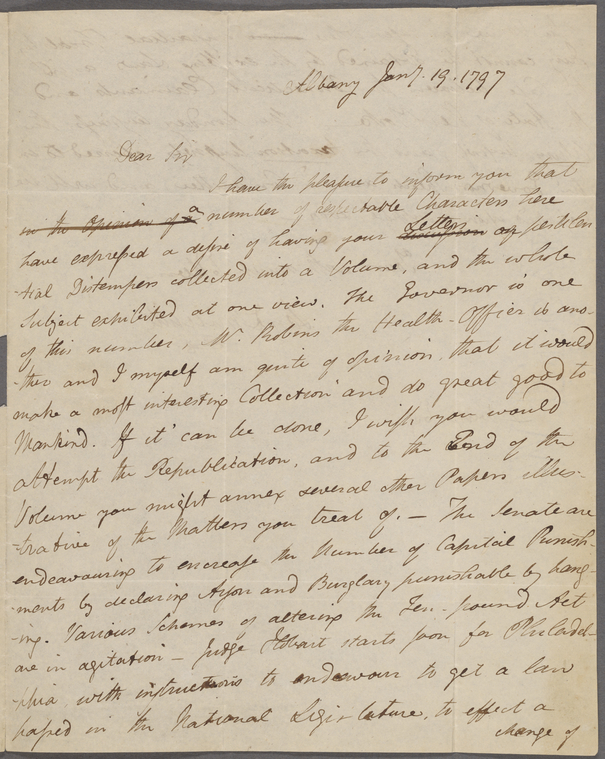 Albany Jany. 19. 1797
Dear Sir
I have the pleasure to inform you that
in the opinion of a number of respectable Characters here
have expressed a desire of having your Letters on pestilen
-tial Distempers collected into a Volume, and the whole
Subject exhibited at one view. The Governor is one
of this number, Mr. Robins the Health-Officer is ano-
-ther and I myself am quite of opinion, that it would
make a most interesting Collection and do great good to
Mankind. If it can be done, I wish you would
attempt the Republication, and to the End of the
Volume you might annex several other Papers illus-
-trative of the Matters you treat of. — The Senate are
endeavouring to encrease the Number of Capital Punish-
-ments by declaring Arson and Burglary punishable by hang-
-ing. Various Schemes of altering the Ten-pound Act
are in agitation — Judge Hobart starts soon for Philadel-
-phia with instructions to endeavour to get a law
passed in the National Legislature, to effect a
change of